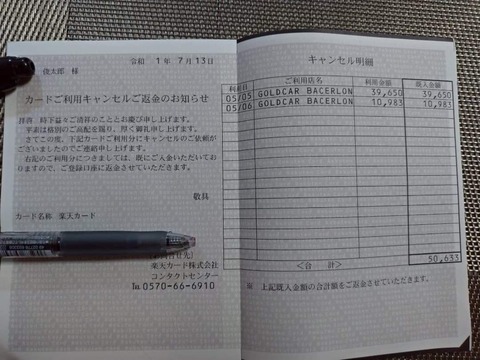 令和 1年 7月13日
俊太郎 様
カードご利用キャンセルご返金のお知らせ
拝啓 時下益々ご清祥のこととお慶び申し上げます。
平素は格別のご高配を賜り、厚く御礼申し上げます。
さてこの度、下記カードご利用分にキャンセルのご依頼が
ございましたのでご連絡申し上げます。
右記のご利用分につきましては、既にご入金いただいてお
りますので、ご登録口座に返金させていただきます。
敬具
カード名称 楽天カード
楽天カード株式会社
コンタクトセンター
℡ 0570-66-6910
キャンセル明細
利用日 ご利用店名 利用金額 既入金額
05/05 GOLDCAR BACERLON 39,650 39,650
05/06 GOLDCAR BACERLON 10,983 10,983
＜合 計＞ 50,633
※ 上記既入金額の合計額をご返金させていただきます。